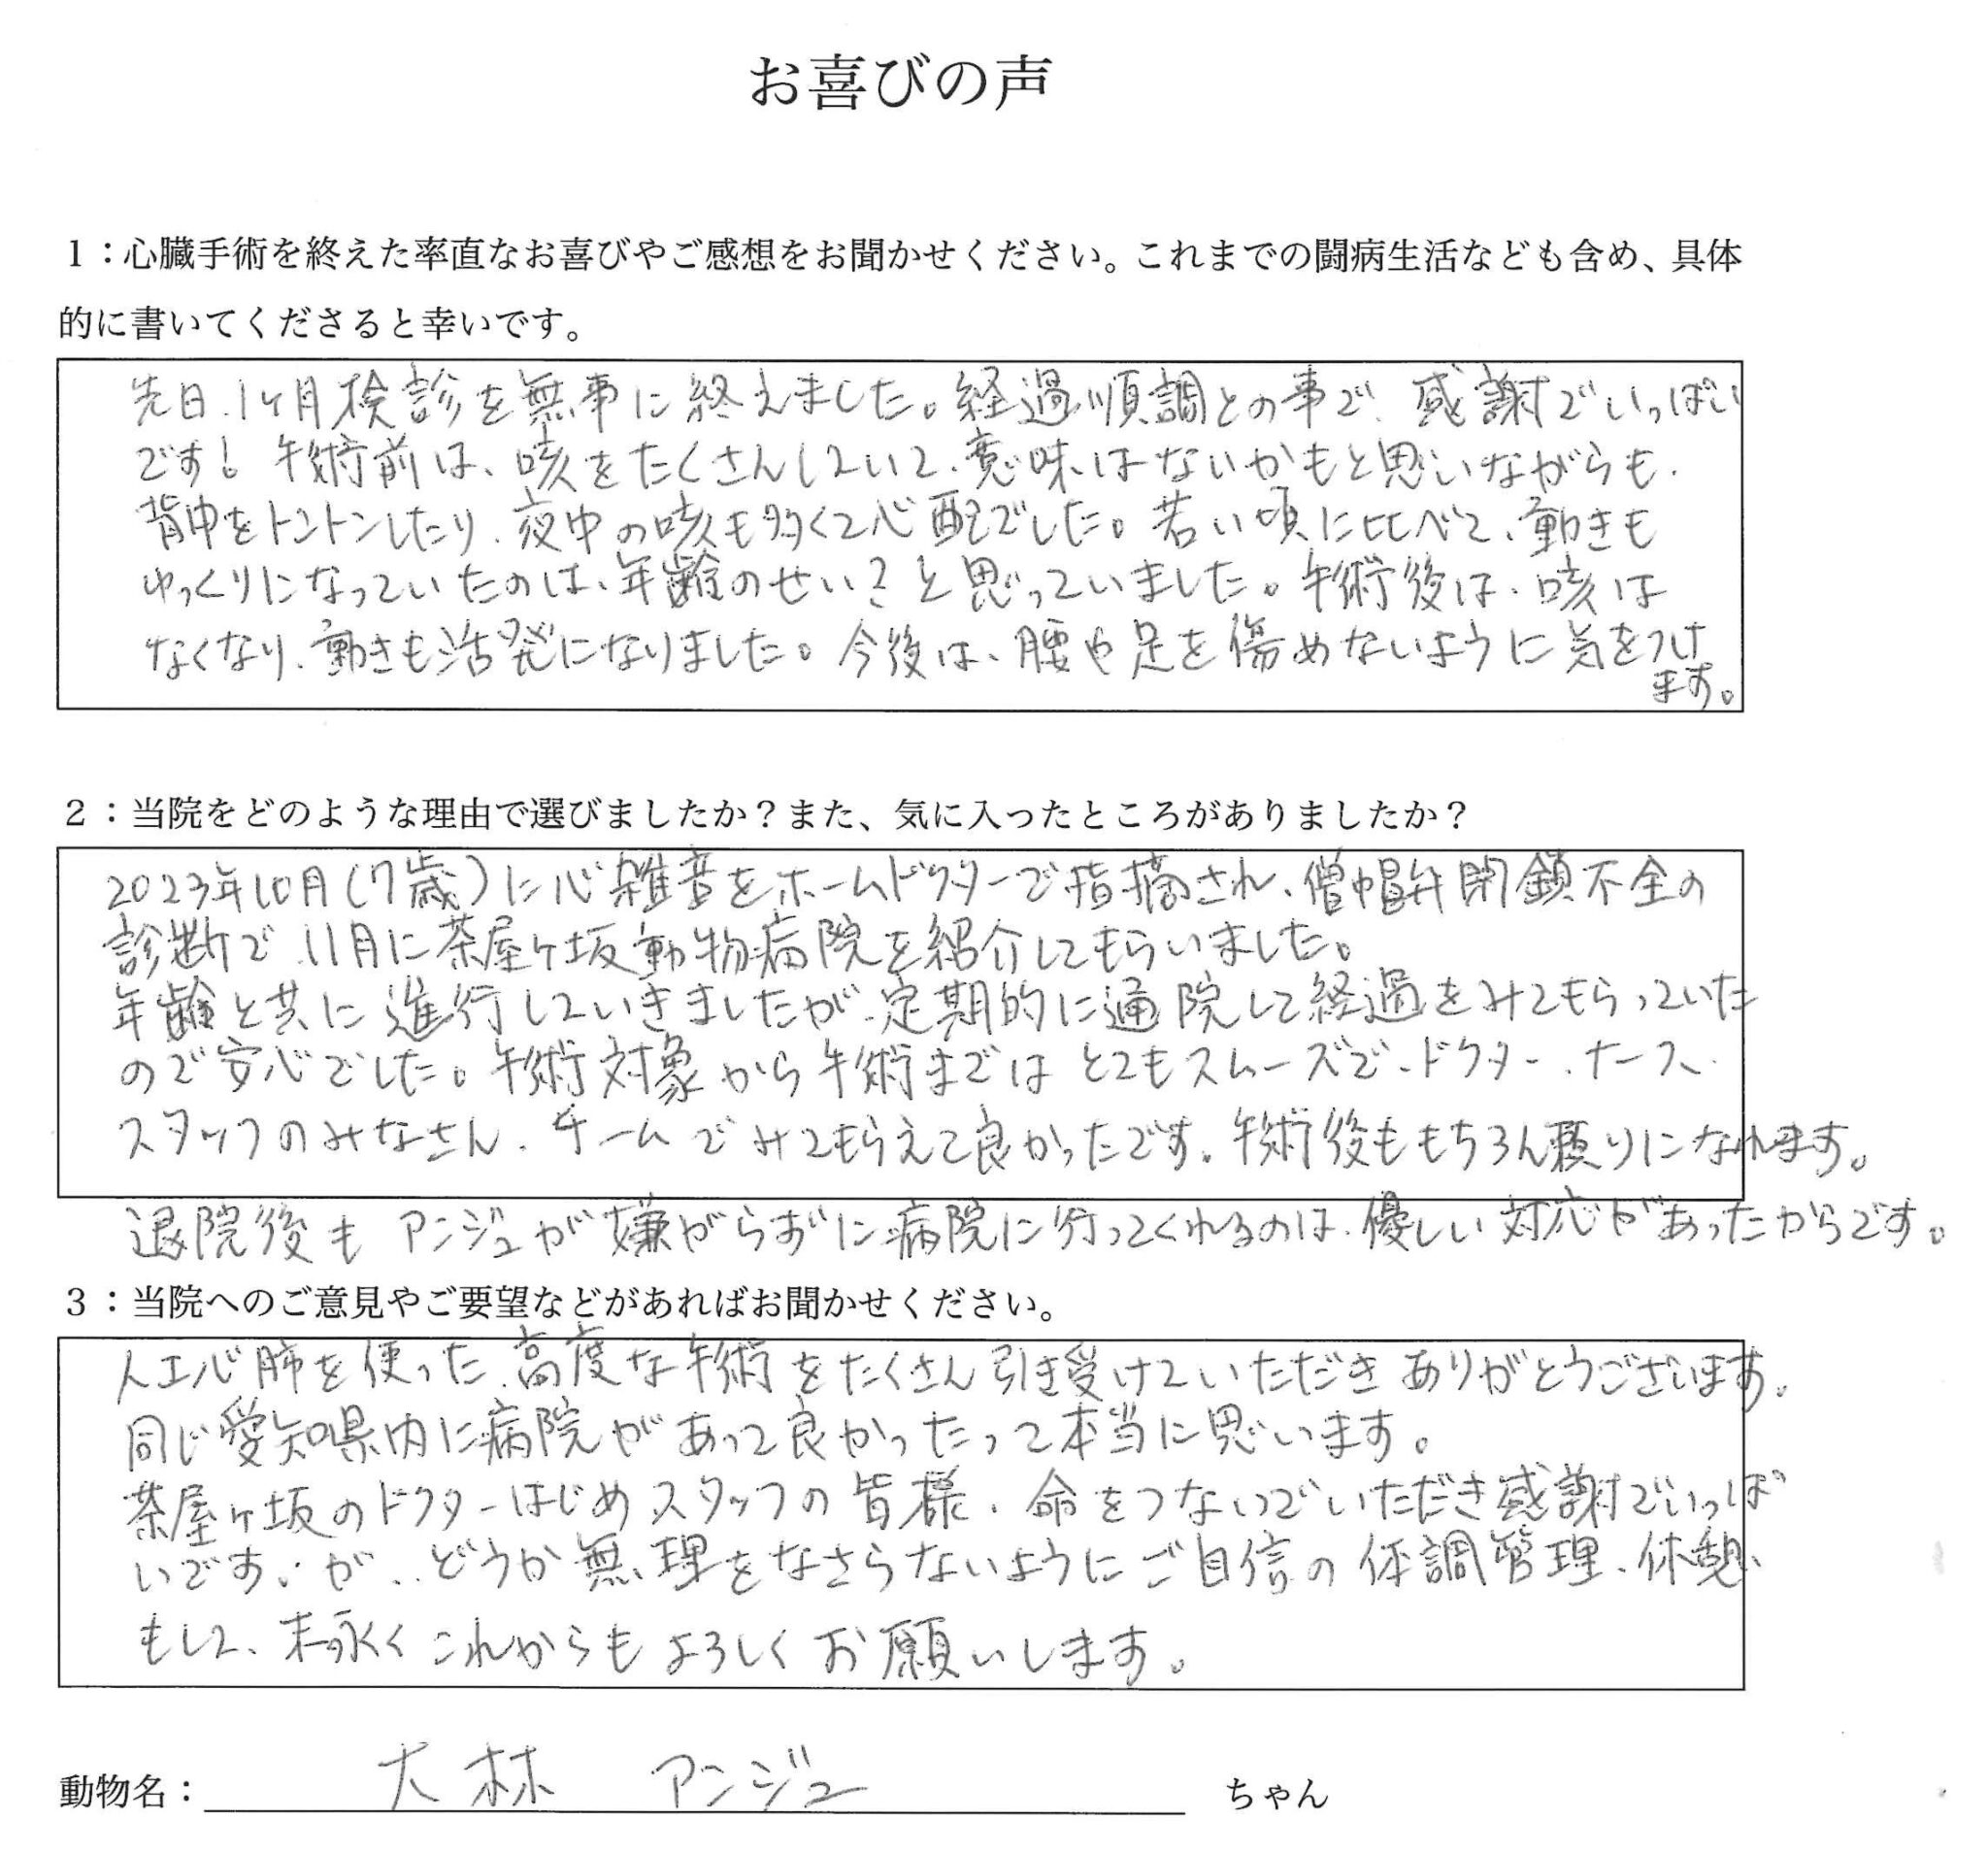 お喜びの声
１：心臓手術を終えた率直なお喜びやご感想をお聞かせください。これまでの闘病生活なども含め、具体
的に書いてくださると幸いです。
先日、1ヶ月検診を無事に終えました。経過順調との事で、感謝でいっぱい
です！手術前は、咳をたくさんしていて、意味はないかもと思いながらも、
背中をトントンしたり、夜中の咳も多くて心配でした。若い頃に比べて、動きも
ゆっくりになっていたのは、年齢のせい？と思っていました。手術後は、咳は
なくなり、動きも活発になりました。今後は、腰や足を傷めないように気をつけ
ます。
２：当院をどのような理由で選びましたか？また、気に入ったところがありましたか？
2023年10月(7歳)に心雑音をホームドクターで指摘され、僧帽弁閉鎖不全の
診断で、11月に茶屋ヶ坂動物病院を紹介してもらいました。
年齢と共に進行していきましたが、定期的に通院して経過をみてもらっていた
ので安心でした。手術対象から手術まではとてもスムーズで、ドクター、ナース、
スタッフのみなさん、チームでみてもらえて良かったです。手術後ももちろん頼りになれます。
退院後もアンジュが嫌がらずに病院に行ってくれるのは、優しい対応があったからです。
３：当院へのご意見やご要望などがあればお聞かせください。
人工心肺を使った、高度な手術をたくさん引き受けていただきありがとうございます。
同じ愛知県内に病院があって良かったって本当に思います。
茶屋ヶ坂のドクターはじめスタッフの皆様、命をつないでいただき感謝でいっぱ
いです、が、、どうか無理をなさらないようにご自信の体調管理、休憩、
もして、末永くこれからもよろしくお願いします。
動物名：大林 アンジュ ちゃん